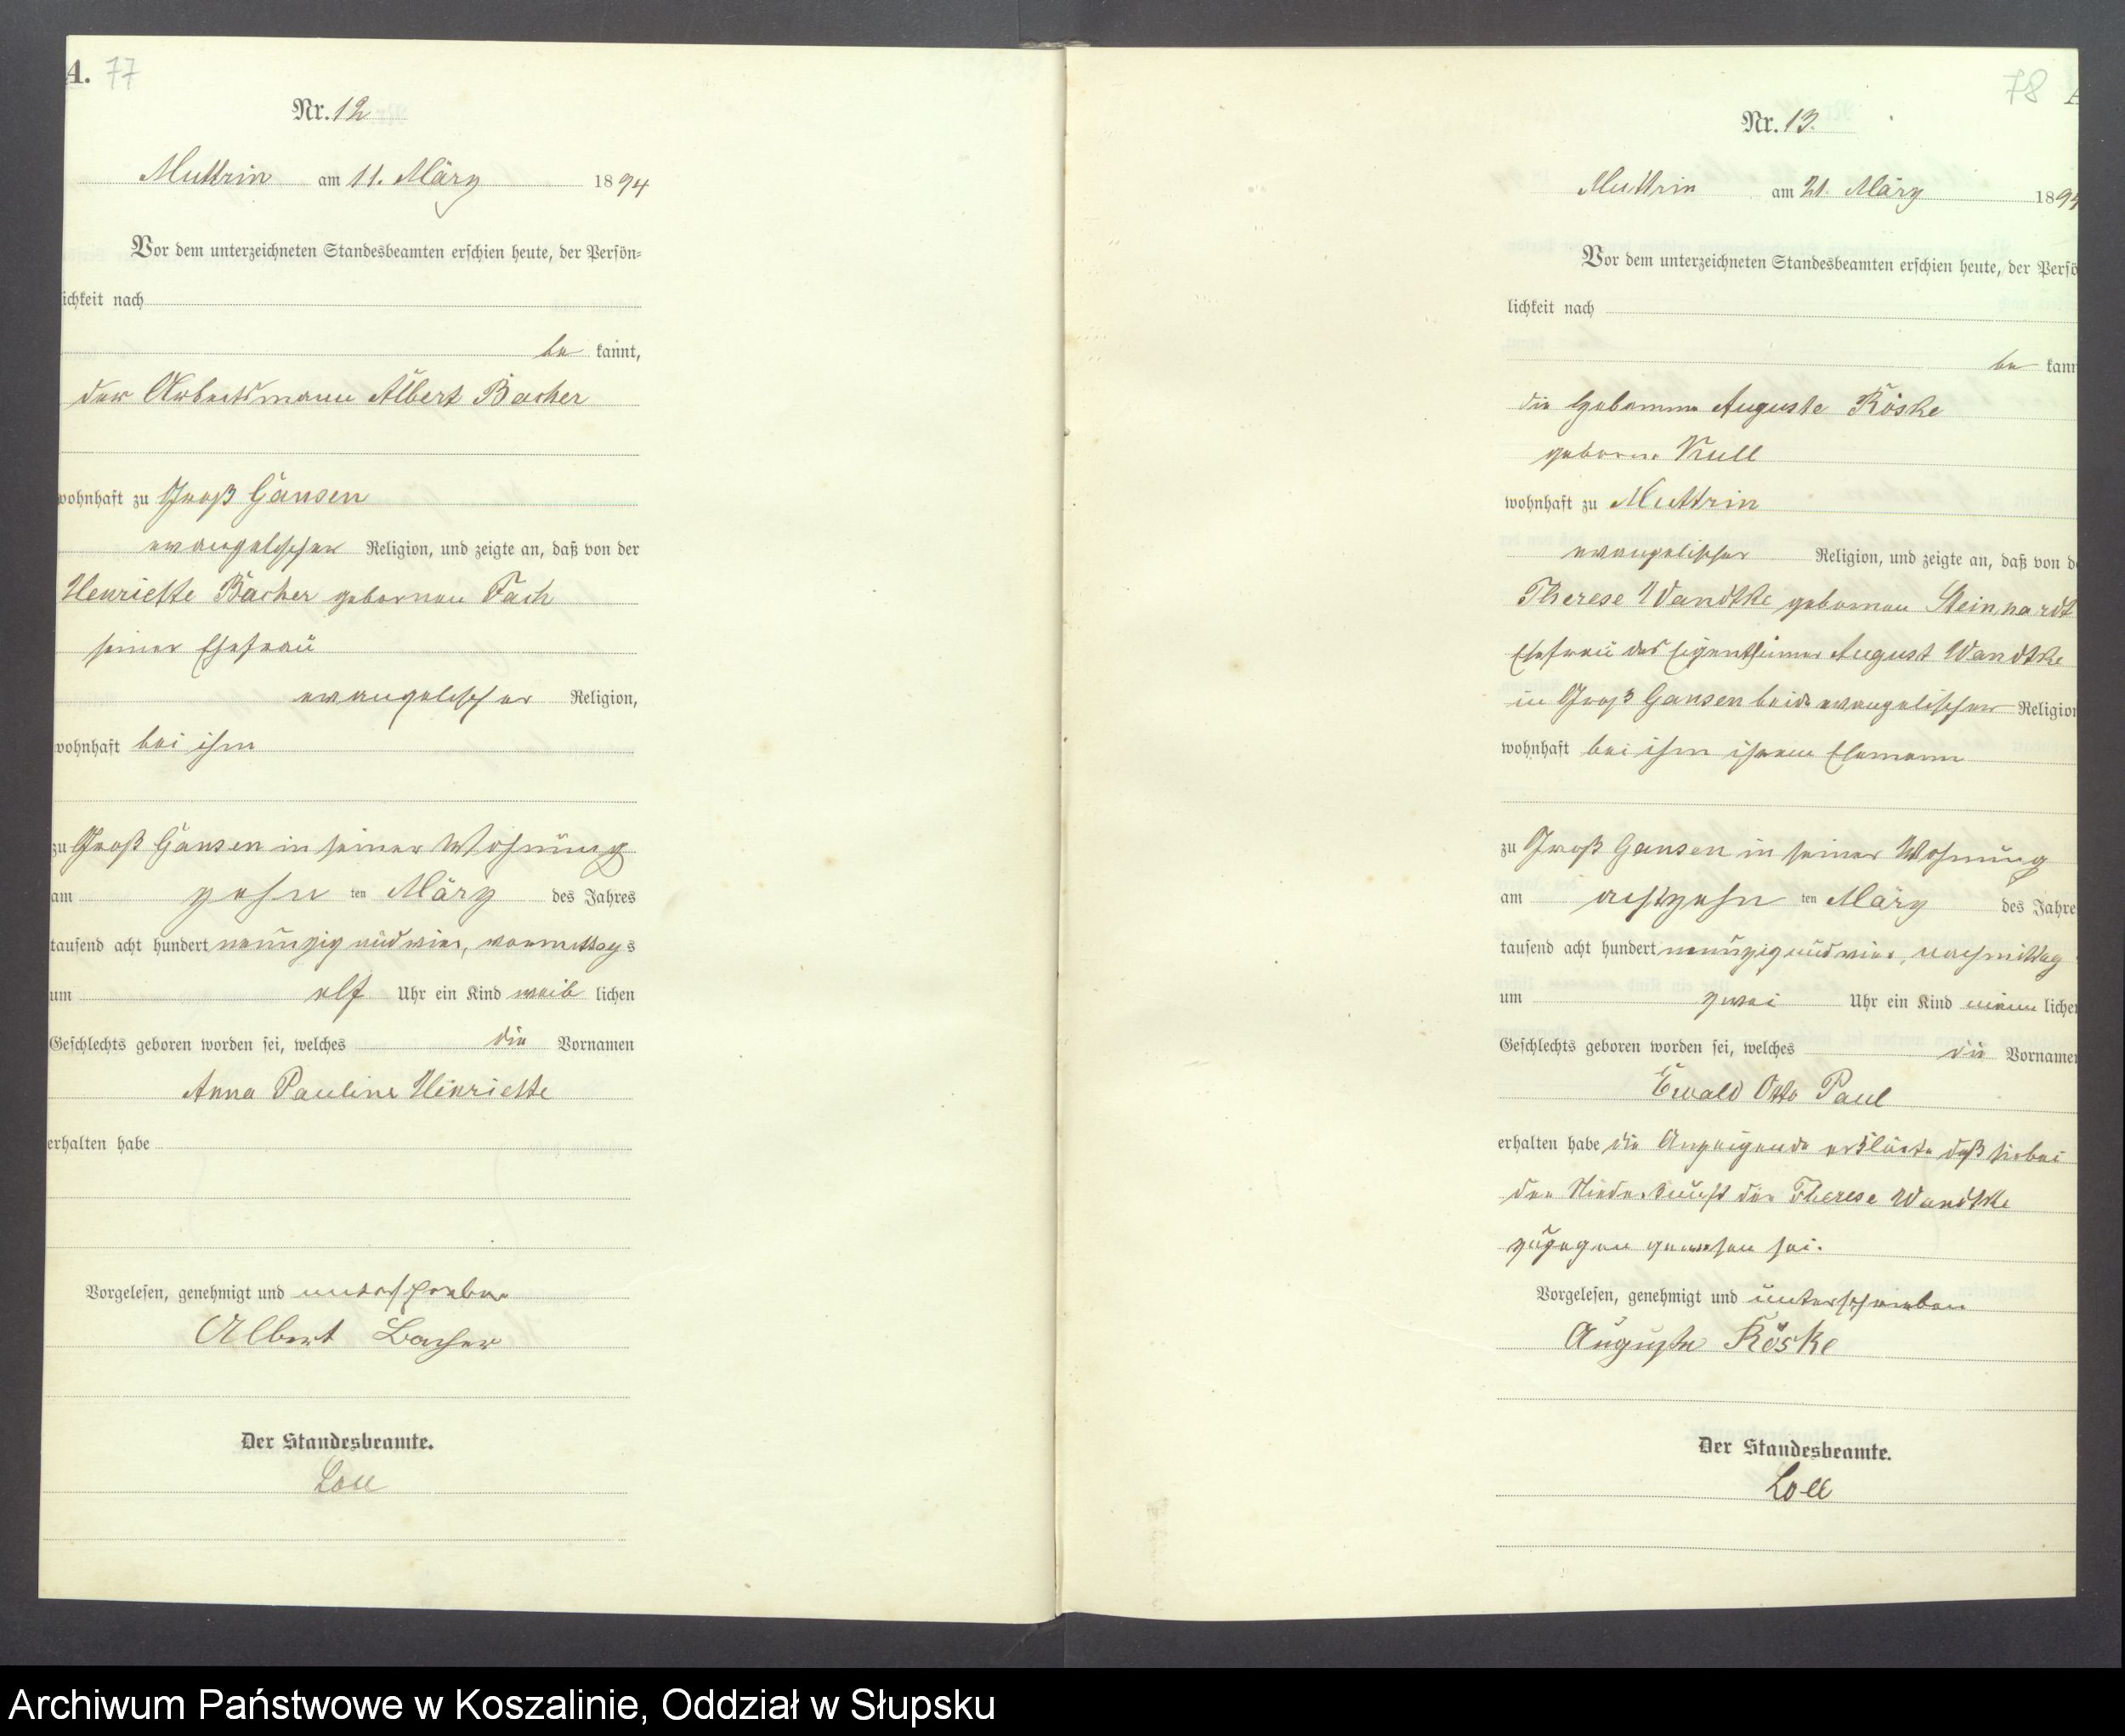 A. 77
Nr. 12
Muttrin am 11. März 1894
Vor dem unterzeichneten Standesbeamten erschien heute, der Persön-
ichkeit nach
be kannt,
der Arbeitsmann Albert Bacher
wohnhaft zu Groß Gansen
evangelischer Religion, und zeigte an, daß von der
Henriette Bacher gebornen Fach
seiner Ehefrau
evangelischer Religion,
wohnhaft bei ihm
zu Groß Gansen in seiner Wohnung
am zehn ten März des Jahres
tausend acht hundert neunzig und vier, vormittags
um elf Uhr ein Kind weib lichen
Geschlechts geboren worden sei, welches die Vornamen
Anna Pauline Henriette
erhalten habe
Vorgelesen, genehmigt und unterschrieben
Albert Bacher
Der Standesbeamte.
Loll
78
Nr. 13.
Muttrin am 21. März 1894
Vor dem unterzeichneten Standesbeamten erschien heute, der Persö
lichkeit nach
be kann
die Hebamme Auguste Röske
geborne Kull
wohnhaft zu Muttrin
evangelischer Religion, und zeigte an, daß von d
Therese Wandtke gebornen Steinhardt
Ehefrau des Eigenthümer August Wandtke
in Groß Gansen beide evangelischer Religion
wohnhaft bei ihm ihrem Ehemann
zu Groß Gansen in seiner Wohnung
am achtzehn ten März des Jahre
tausend acht hundert neunzig und vier, nachmittag
um zwei Uhr ein Kind männ lichen
Geschlechts geboren worden sei, welches die Vornamen
Ewald Otto Paul
erhalten habe die Anzeigende erklärte daß sie bei
der Niederkunft der Therese Wandtke
zugegen gewesen sei.
Vorgelesen, genehmigt und unterschrieben
Auguste Röske
Der Standesbeamte.
Loll
Archiwum Państwowe w Koszalinie, Oddział w Słupsku